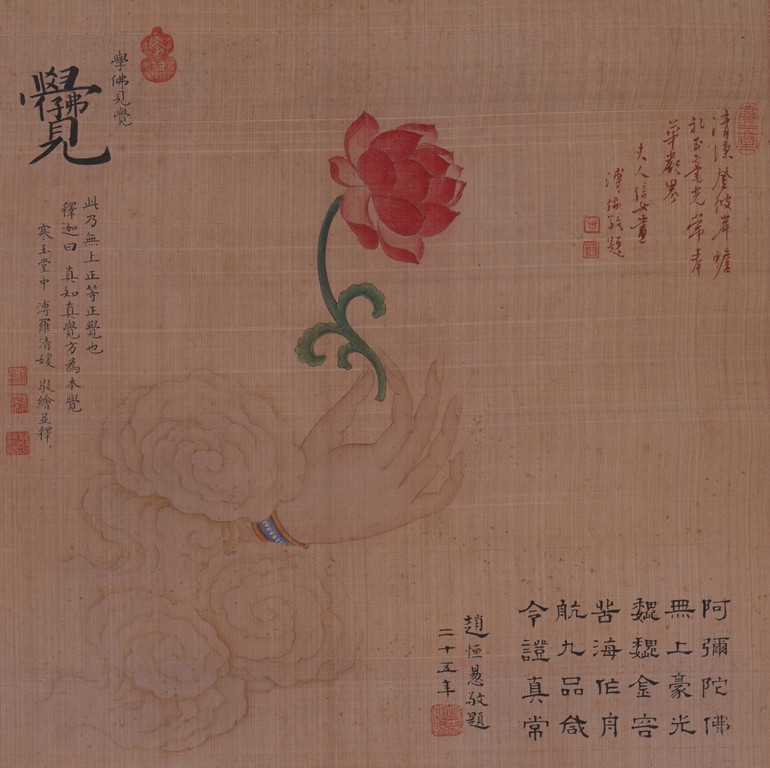 清涼登彼岸
華嚴界
夫人信女畫
溥儒敬題
學佛見覺
覺
此乃無上正等正覺也
釋迦曰 真知真覺方為本覺
寒玉堂中 溥羅清媛 敬繪並釋
阿彌陀佛
無上豪光
巍巍金容
苦海作舟
航九品咸
令證真常
趙恒惖敬題
二十五年